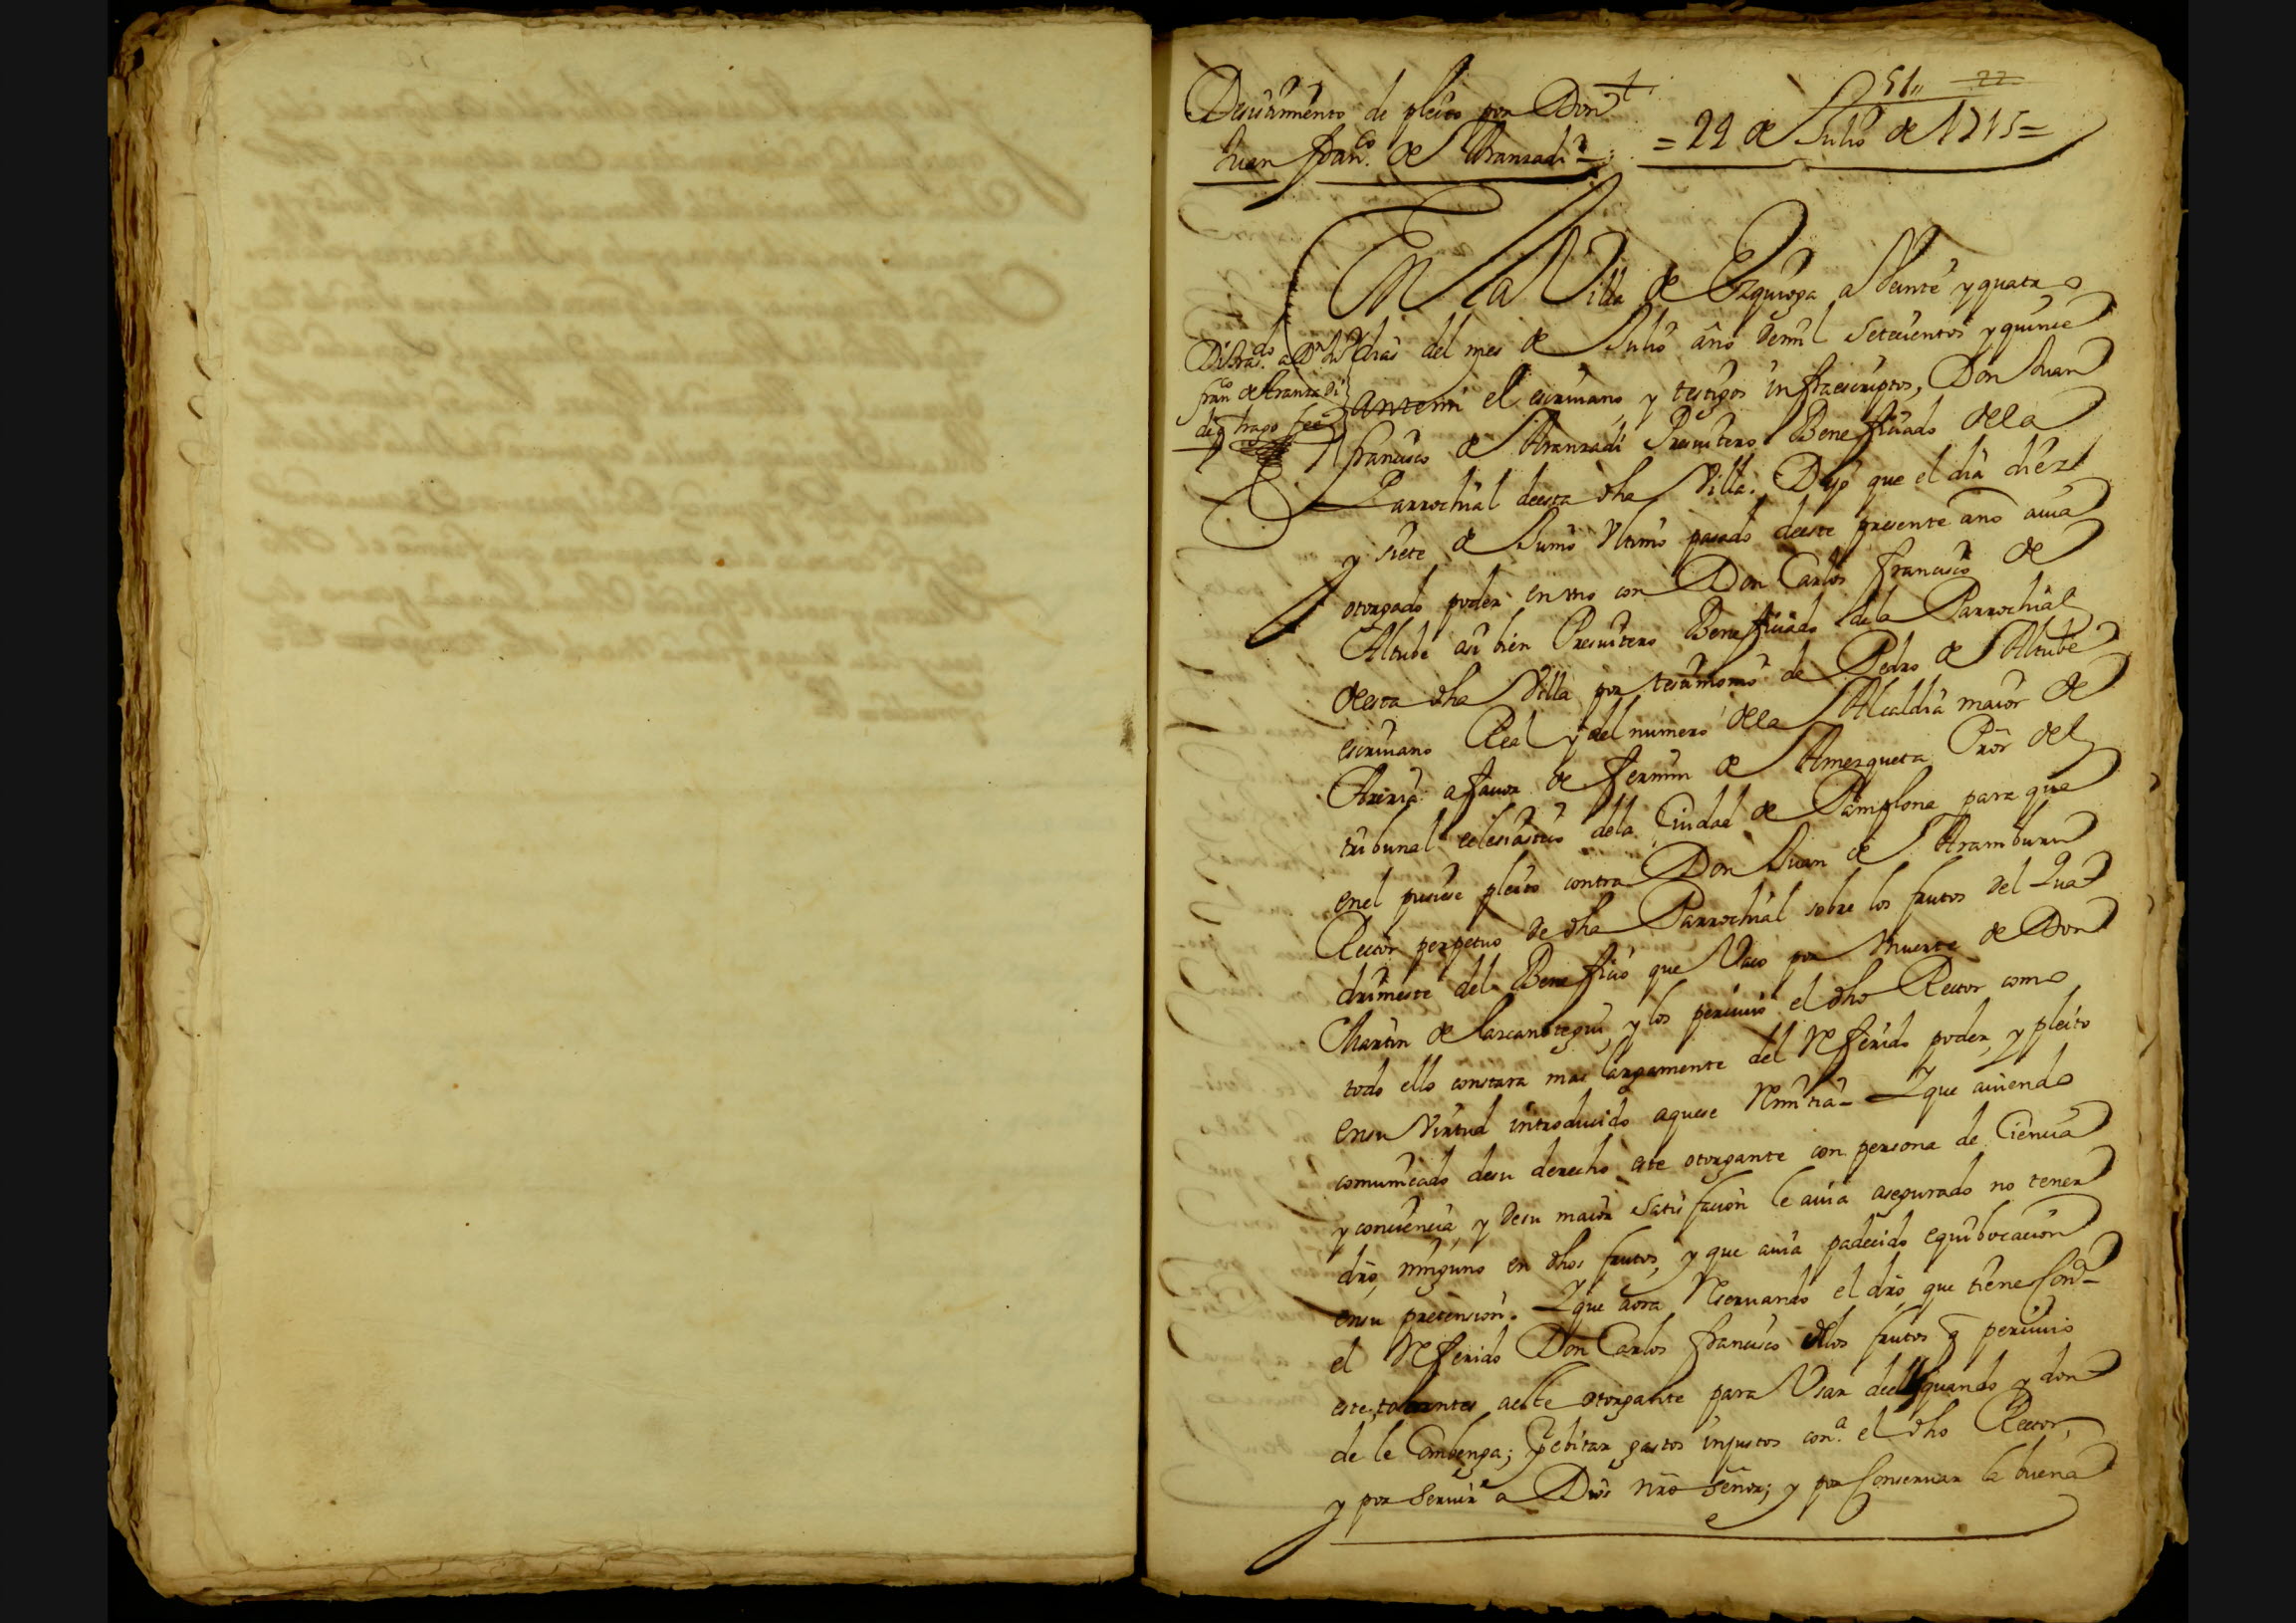 51,, 22
Desistimiento de pleito por Don
Juan fran.co de Aranzadi = 24 de Julio de 1715 =
En la Villa de Ezquioga a Veinte y quatro
dias del mes de Julio año demil Setecientos y quince
antemi el escriuano, y testigos infraescriptos, Don Juan
francisco de Aranzadi Presuitero Beneficiado dela
Parrochial deesta dha Villa. Dijo que el dia diez
y siete de Junio Vltimo pasado deeste presente año auia
otorgado poder en vno con Don Carlos francisco de
Altube asi bien Presuitero Beneficiado dela Parrochial
deesta dha Villa por testimonio de Pedro de Altube
escriuano Real y del numero dela Alcaldia maior de
Areria a fauor de fermin de Amezqueta Pror del
tribunal eclesiastico dela Ciudad de Pamplona para que
enel pusiese pleito contra Don Juan de Aramburu
Rector perpetuo de dha Parrochial sobre los frutos del Qua
drimestre del Beneficio que Vaco por Muerte de Don
Martin de Larcanotegui, y los periuio el dho Rector como
todo ello constara mas largamente del Referido poder, y pleito
ensu Virtud introducido aquese Remitia = Y que auiendo
comunicado desu derecho este otorgante con persona de Ciencia
y conciencia, y desu maior Satisfacion le auia asegurado no tener
dro, ninguno en dhos frutos, y que auia padecido equibocacion
ensu pretension. Y que aora Reseruando el dro, que tiene Con-
el Referido Don Carlos francisco delos frutos q periuio
este, tocantes aeste otorgante para Vsar deel quando y don
de le Combenga; Y ebitar gastos injustos con.a el dho Rector,
y por Seruir a Dios nro Señor; y por Conseruar la buena
Di tras.do a Dn Jn
fran.co de Aranzadi
de q hago fee